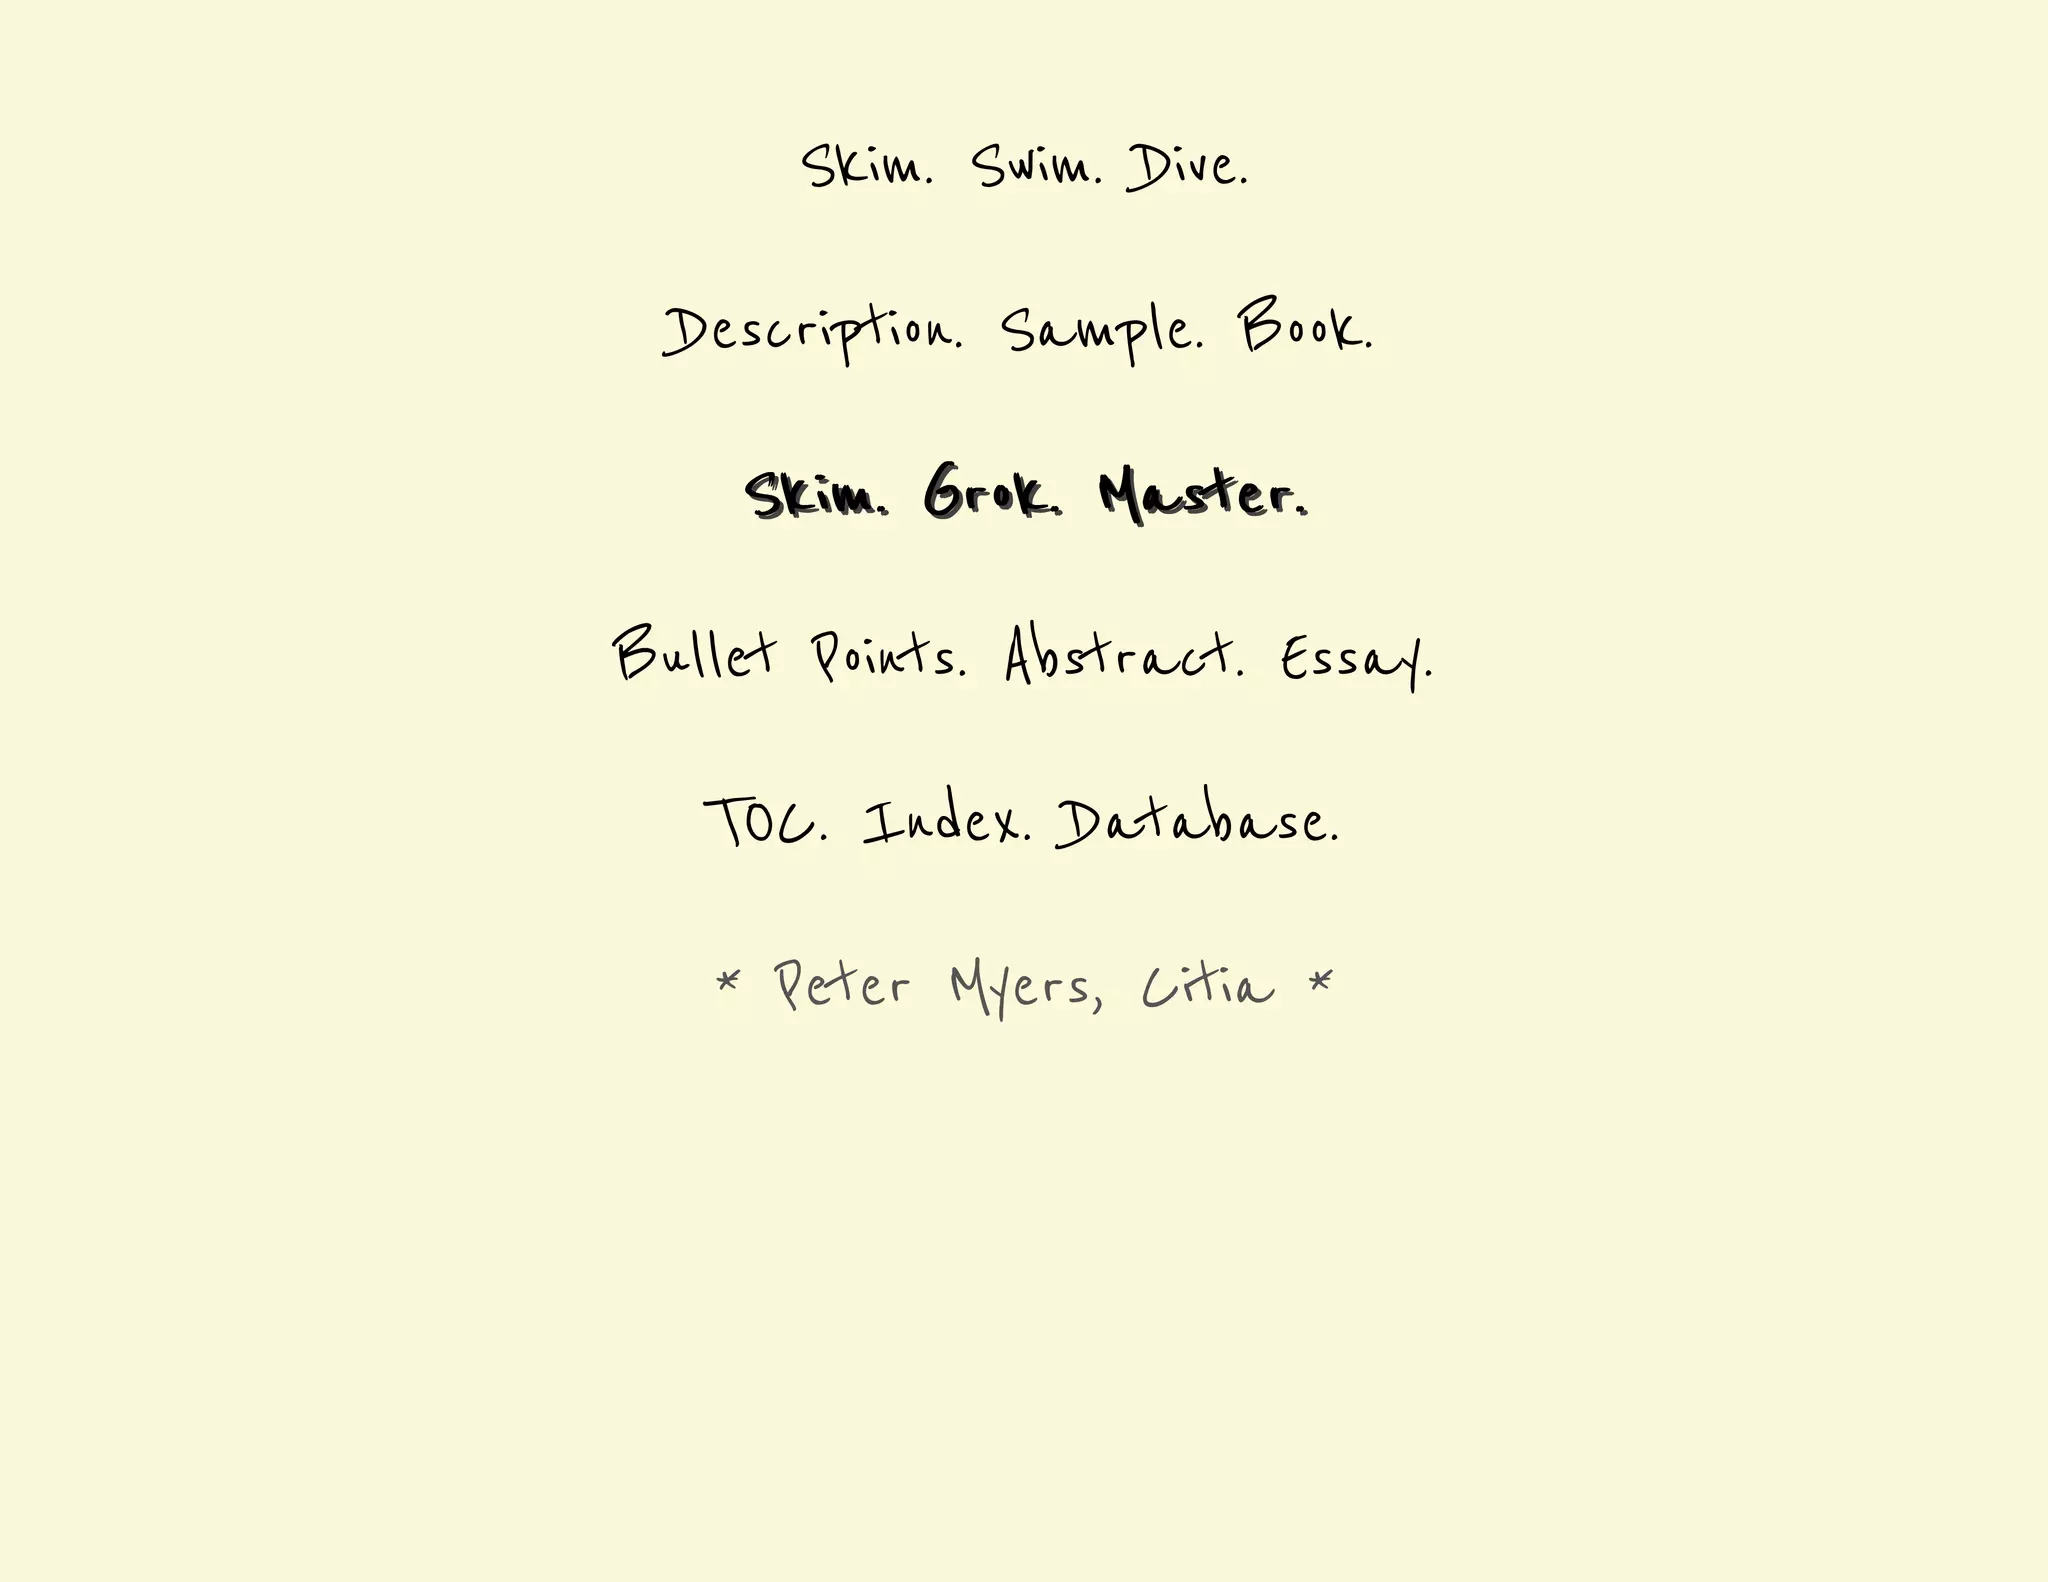 Skim. Swim. Dive.
Description. Sample. Book.
Skim. Grok. Master.
Bullet Points. Abstract. Essay.
TOC. Index. Database.
* Peter Myers, Citia *